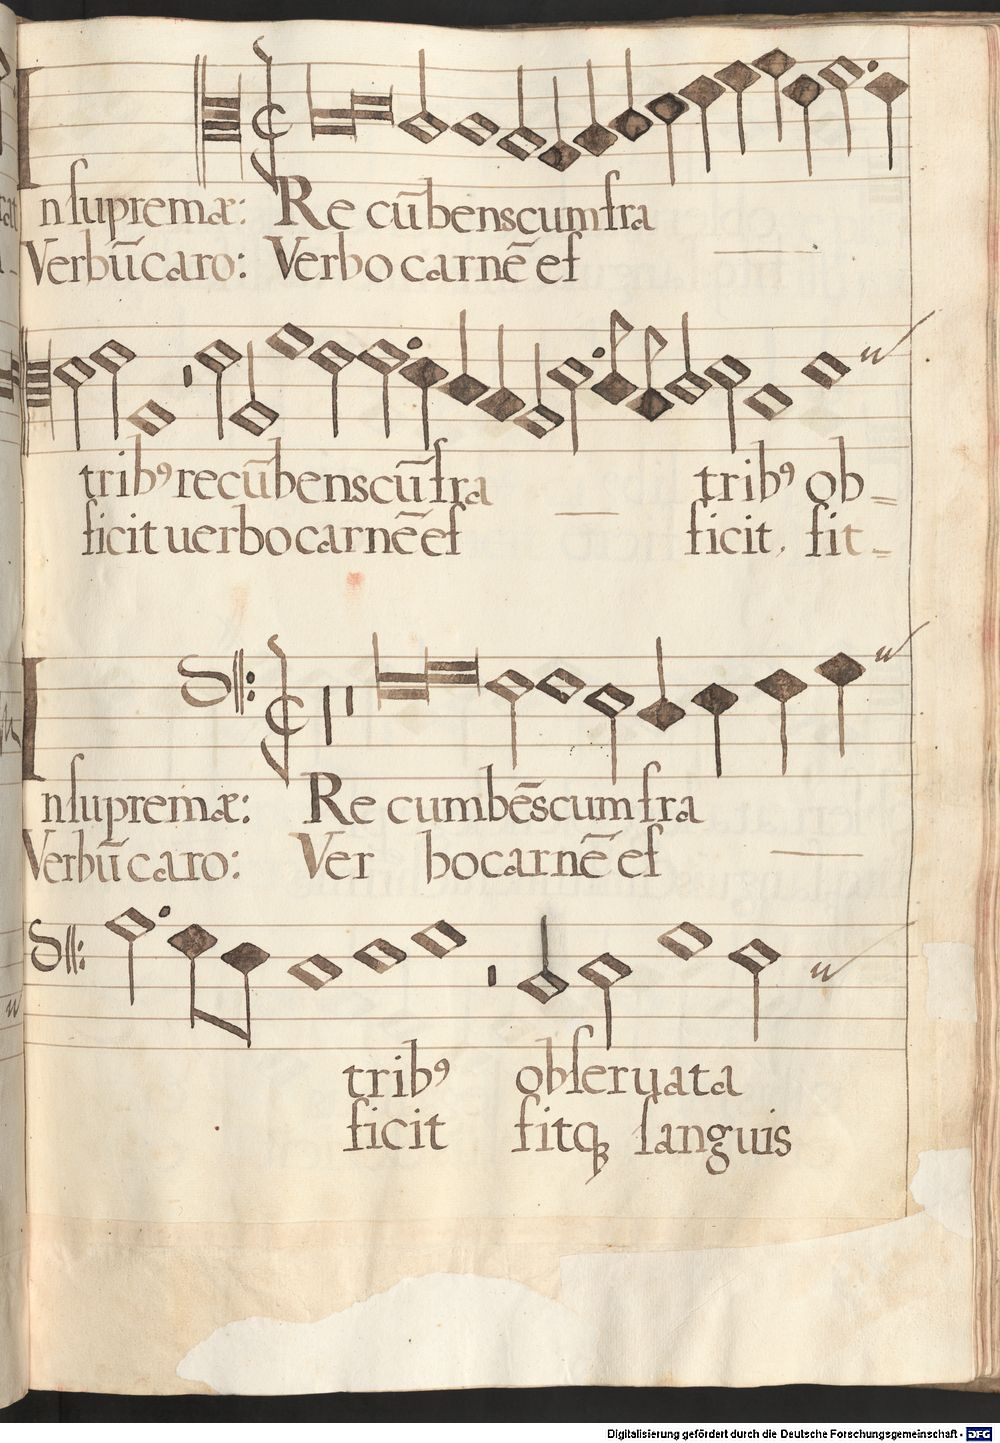 In supremæ: Re cūbens cum fra
Verbū caro: Verbo carnē ef
tribꝰ recūbens cū fra tribꝰ ob-
ficit uerbo carnē ef ficit, fit-
In supremæ: Re cumbēs cum fra
Verbū caro: Ver bo carnē ef
tribꝰ obseruata
ficit fitqꝫ sanguis
Digitalisierung gefördert durch die Deutsche Forschungsgemeinschaft - DFG